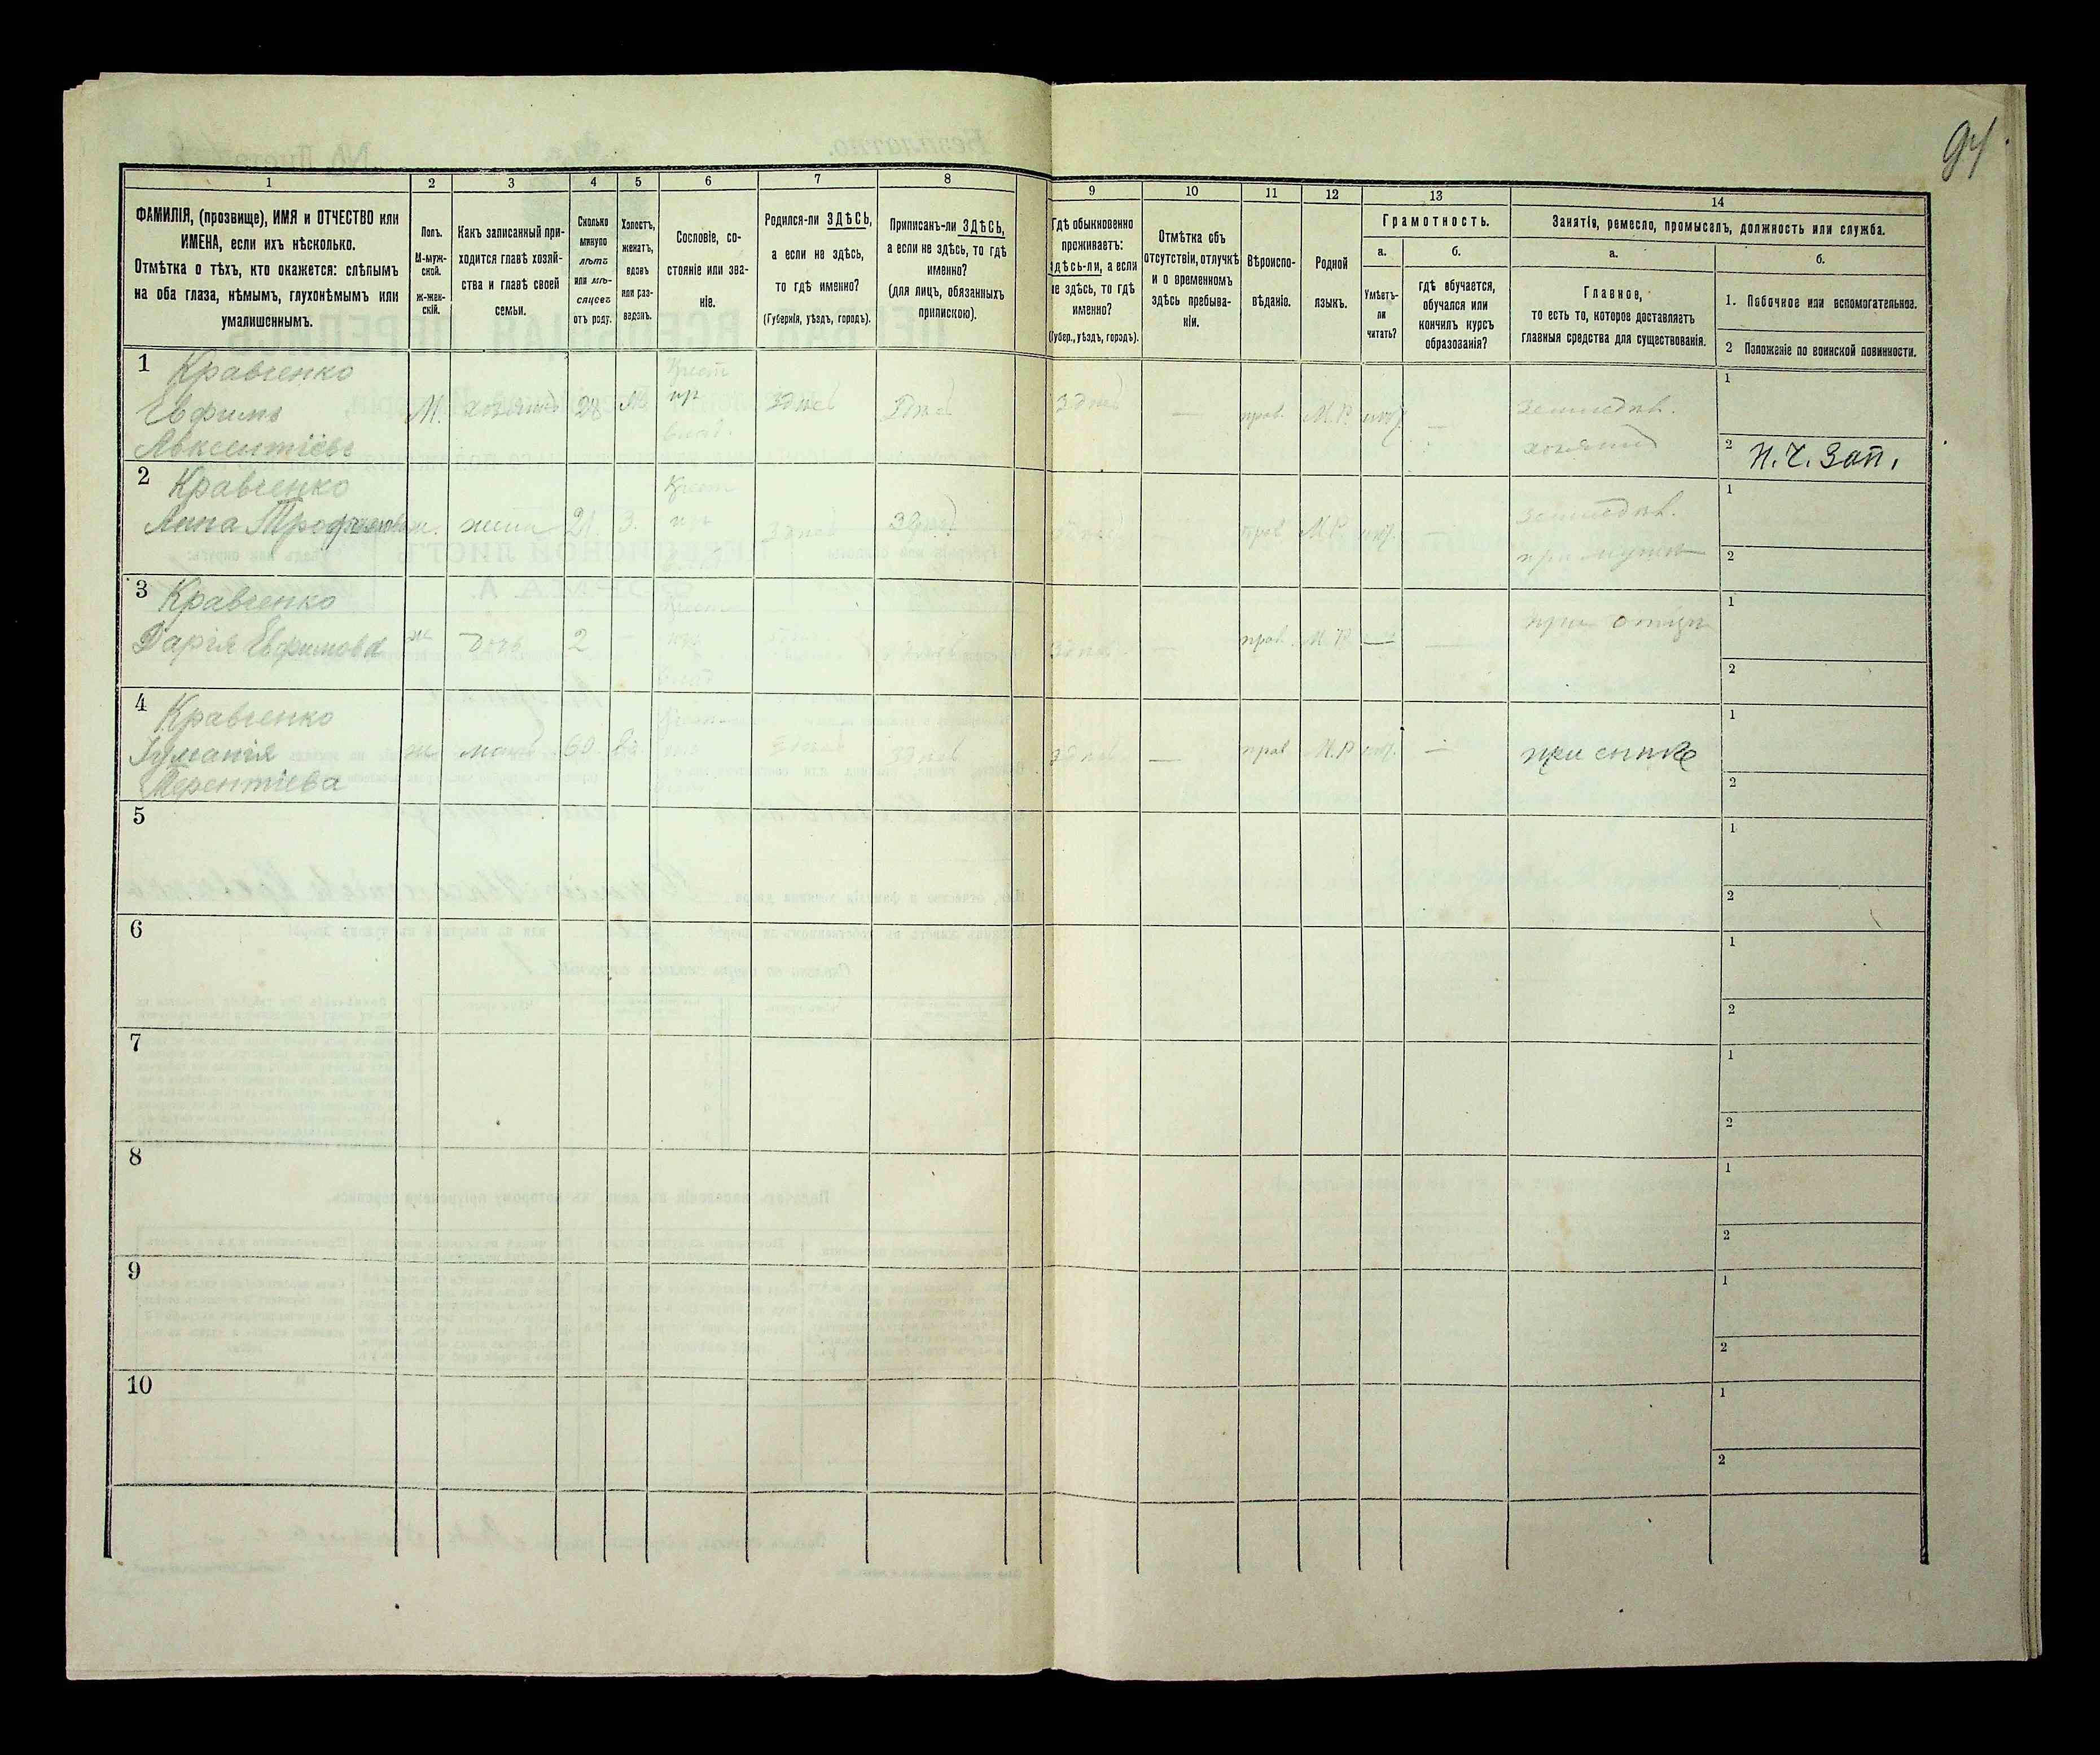 94
1
2
3
4
5
6
7
8
9
10
11
12
13
14
ФАМИЛІЯ, (прозвище), ИМЯ и ОТЧЕСТВО или
ИМЕНА, если ихъ нѣсколько.
Отмѣтка о тѣхъ, кто окажется: слѣпымъ
на оба глаза, нѣмымъ, глухонѣмымъ или
умалишеннымъ.
Полъ.
М-муж-
ской.
ж-жен-
скій.
Какъ записанный при-
ходится главѣ хозяй-
ства и главѣ своей
семьи.
Сколько
минуло
лѣтъ
или мѣ-
сяцевъ
отъ роду.
Холостъ,
женатъ,
вдовъ
или раз-
веденъ.
Сословіе, со-
стояніе или зва-
ніе.
Родился-ли ЗДѢСЬ,
а если не здѣсь,
то гдѣ именно?
(Губернія, уѣздъ, городъ).
Приписанъ-ли ЗДѢСЬ,
а если не здѣсь, то гдѣ
именно?
(для лицъ, обязанныхъ
припискою).
Гдѣ обыкновенно
проживаетъ:
здѣсь-ли, а если
не здѣсь, то гдѣ
именно?
(Губер., уѣздъ, городъ).
Отмѣтка объ
отсутствіи, отлучкѣ
и о временномъ
здѣсь пребыва-
ніи.
Вѣроиспо-
вѣданіе.
Родной
языкъ.
Грамотность.
а.
б.
Умѣетъ-
ли
читать?
гдѣ обучается,
обучался или
кончилъ курсъ
образованія?
Занятія, ремесло, промыселъ, должность или служба.
а.
б.
Главное,
то есть то, которое доставляетъ
главныя средства для существованія.
1. Побочное или вспомогательное.
2 Положеніе по воинской повинности.
1 Кравченко
Евфимъ
Авксентіевъ
М. хозяинъ 28
Крест
здѣсь
здѣсь
здѣсь
—
прав. М.Р.
—
земледѣл.
хозяинъ
1
2 Н. Ч. Зап.
2 Кравченко
Анна Трофимова
жена 21. З.
Крест
здѣсь
здѣсь
—
прав М.Р.
—
земледѣл.
при мужѣ
1
2
3 Кравченко
Дарія Евфимова
ж дочь 2 —
здѣсь
—
прав. М.Р. —
—
при отцѣ
1
2
4 Кравченко
Терентіева
ж мать 60.
здѣсь
здѣсь
здѣсь
—
прав. М.Р
—
при сынѣ
1
2
5
1
2
6
1
2
7
1
2
8
1
2
9
1
2
10
1
2